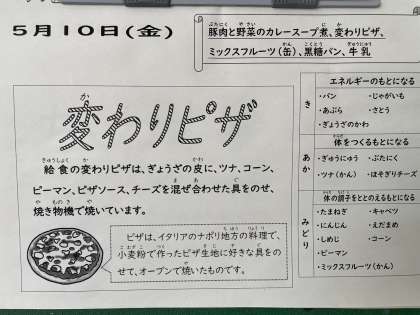 5月10日(金)
豚肉と野菜のカレースープ煮、変わりピザ、
ミックスフルーツ(缶)、黒糖パン、牛乳
変わりピザ
給食の変わりピザは、ぎょうざの皮に、ツナ、コーン、
ピーマン、ピザソース、チーズを混ぜ合わせた具をのせ、
焼き物機で焼いています。
ピザは、イタリアのナポリ地方の料理で、
小麦粉で作ったピザ生地に好きな具をの
せて、オーブンで焼いたものです。
き
エネルギーのもとになる
・パン ・じゃがいも
・あぶら ・さとう
・ぎょうざのかわ
あか
体をつくるもとになる
・ぎゅうにゅう ・ぶたにく
・ツナ(かん) ・ほそぎりチーズ
みどり
体の調子をととのえるもとになる
・たまねぎ ・キャベツ
・にんじん ・えだまめ
・しめじ ・コーン
・ピーマン
・ミックスフルーツ(かん)